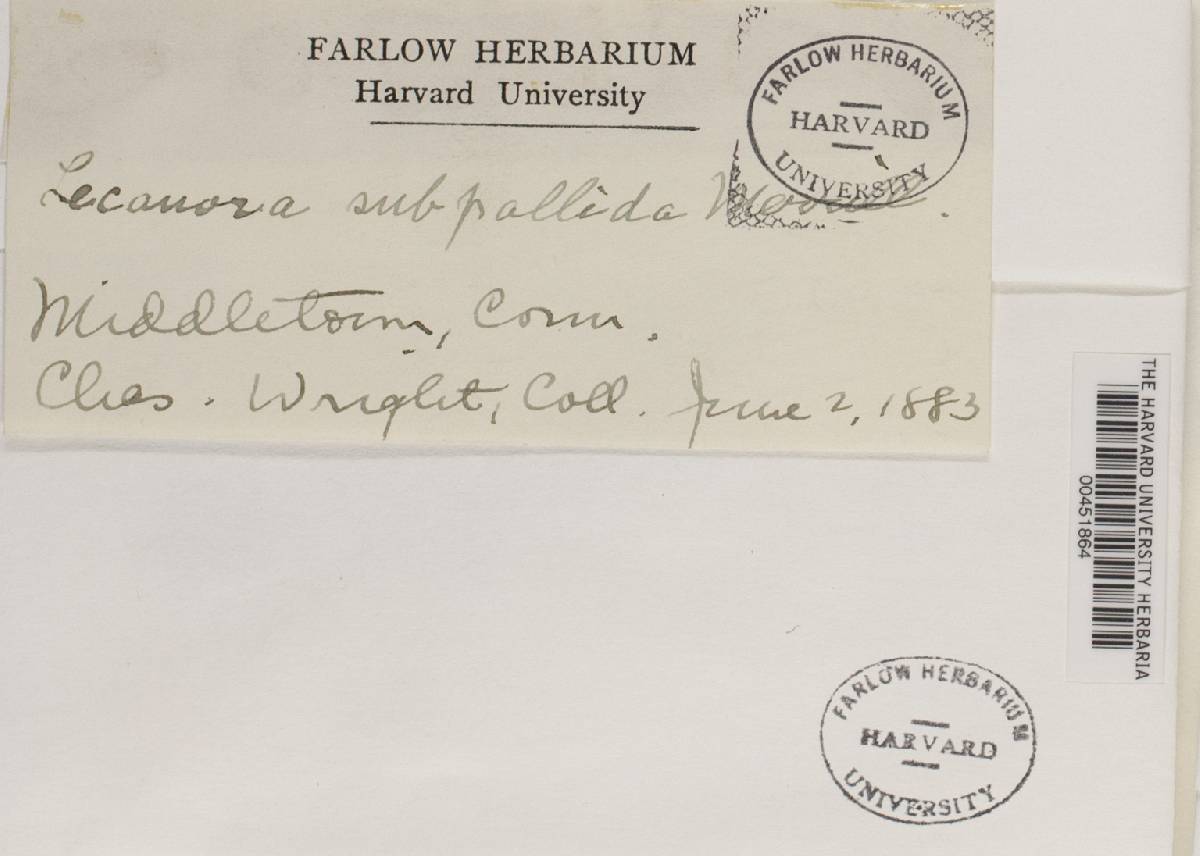 FARLOW HERBARIUM
Harvard University
FARLOW HERBARIUM
HARVARD
UNIVERSITY
Lecanora subpallida
Middletown, Conn.
Chas. Wright, Coll. June 2, 1883
THE HARVARD UNIVERSITY HERBARIA
00451864
FARLOW HERBARIUM
HARVARD
UNIVERSITY